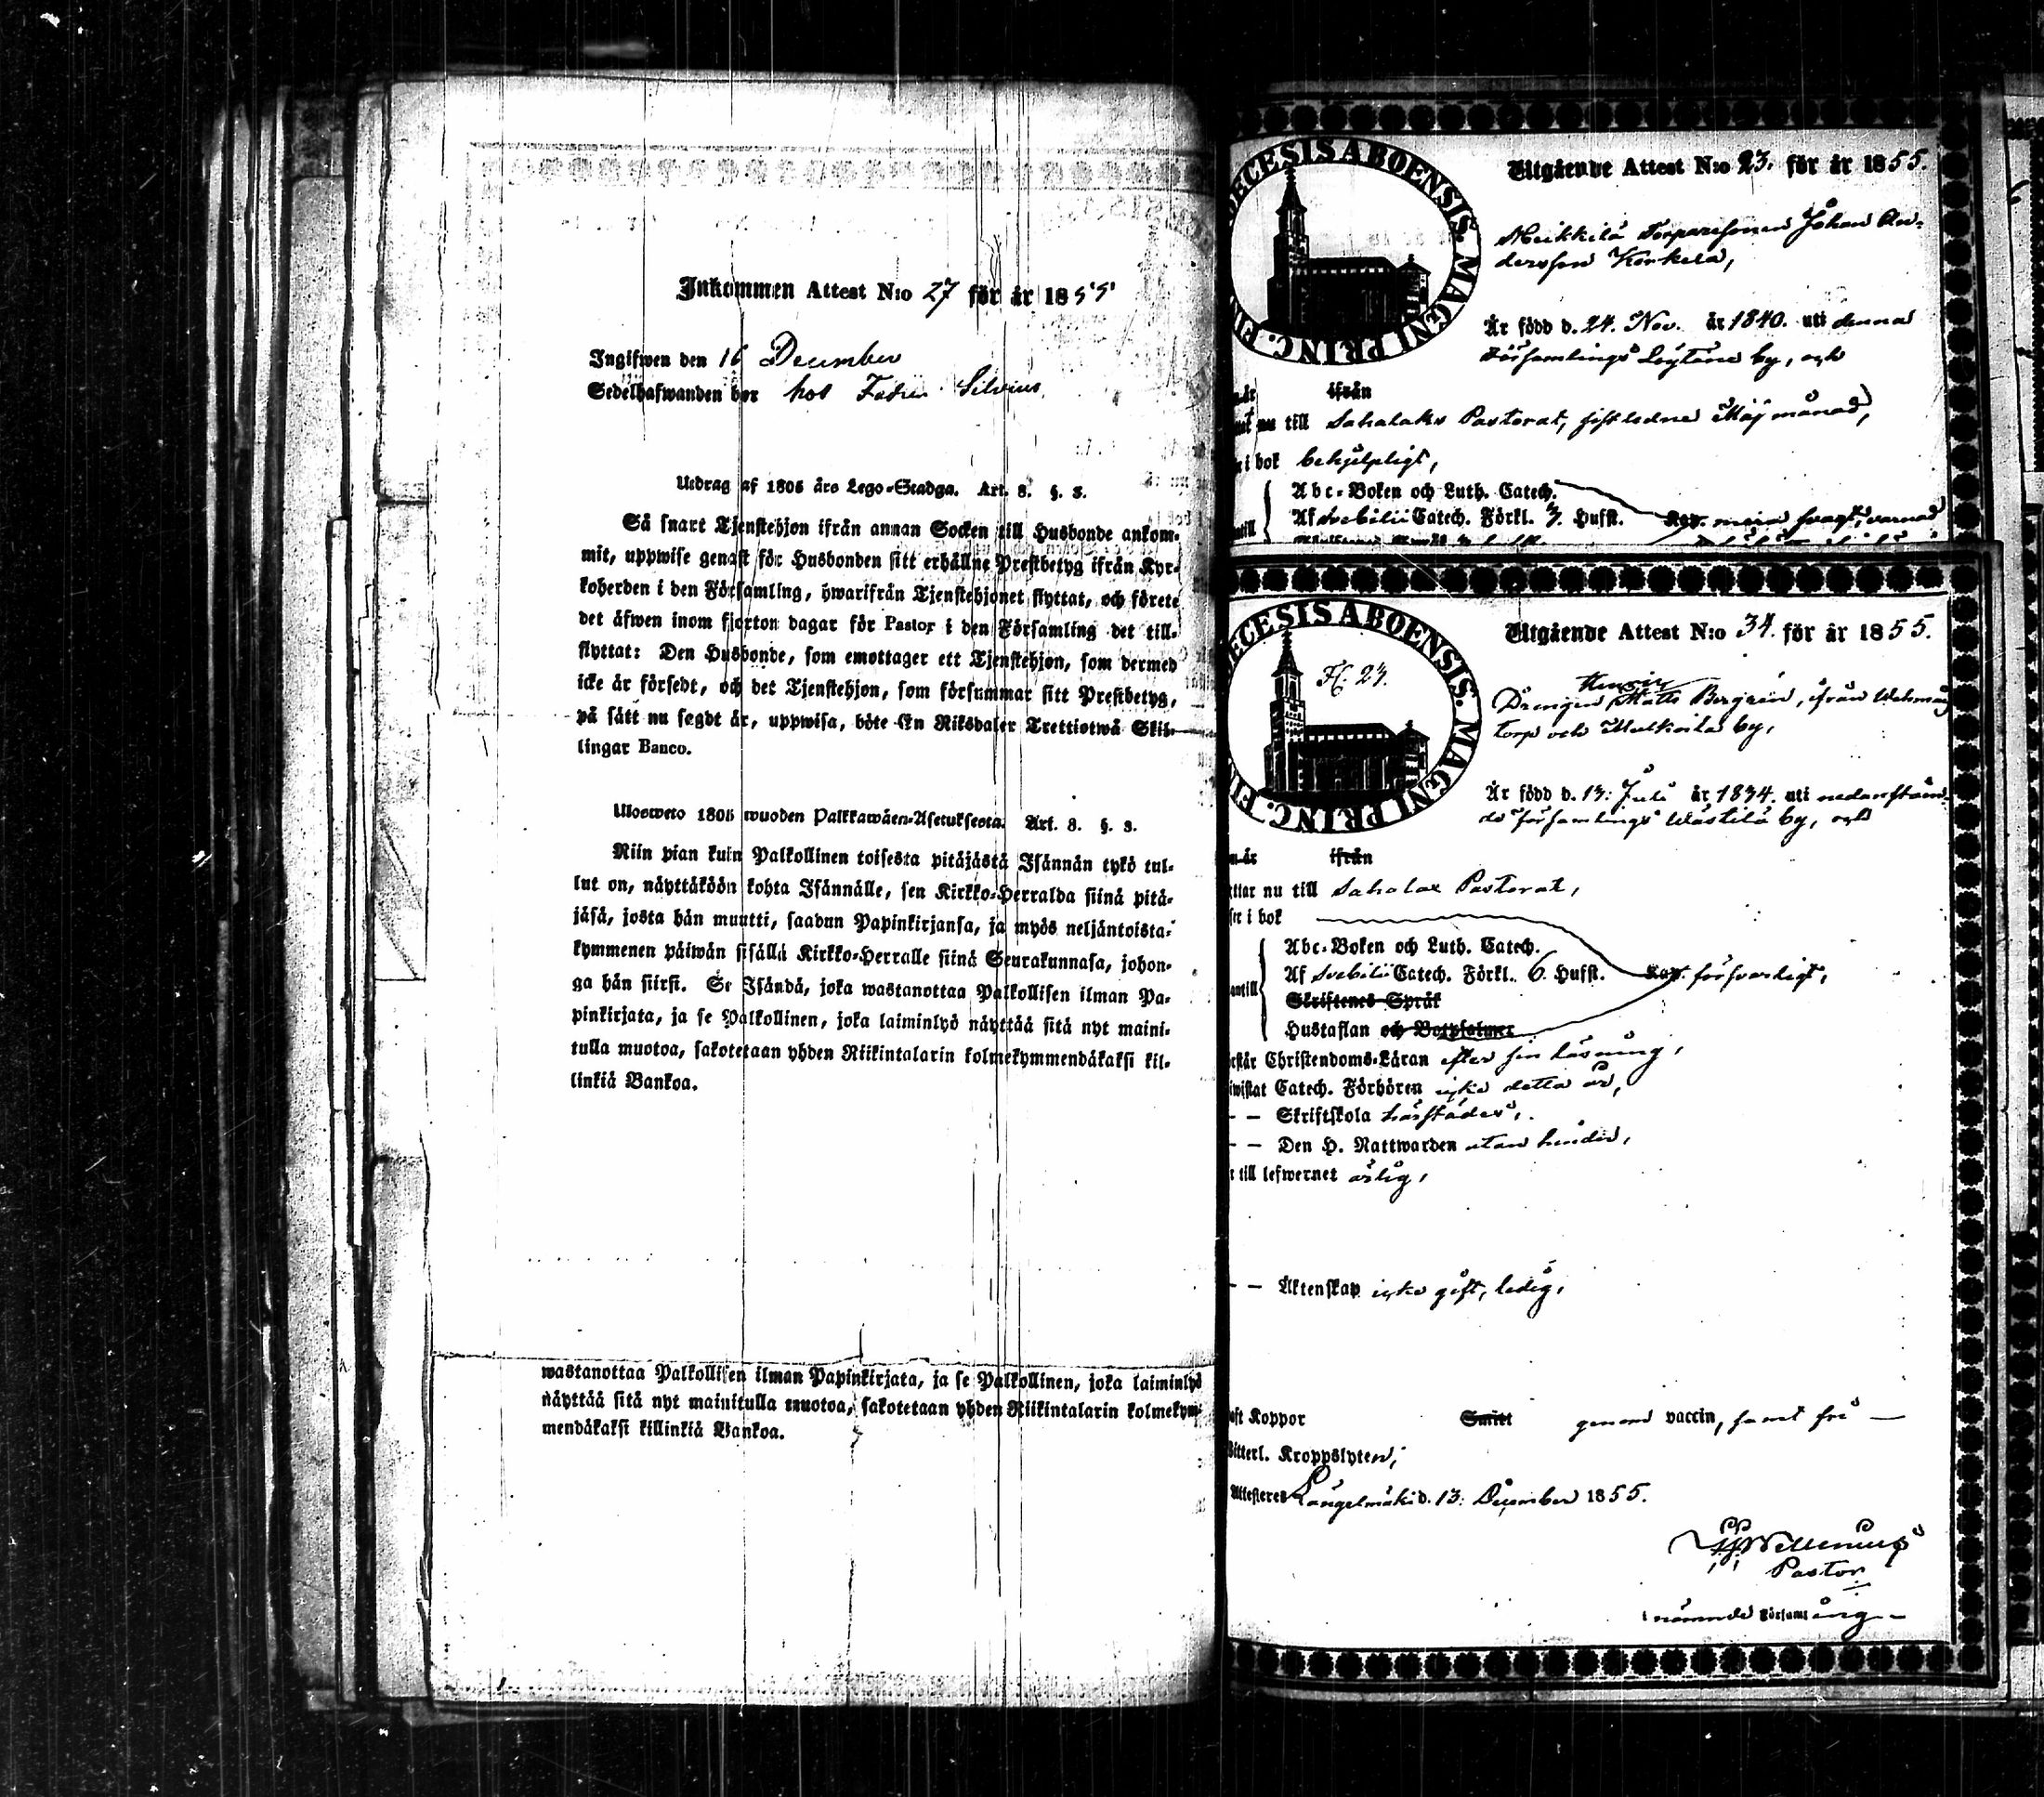 Inkommen Attest N:o 27 för år 1855
Ingifwen den 16 December
Sedelhafwanden bor hos
Utdrag af 1805 års Lego-Stadga. Art. 8. §. 3.
Så snart Tjenstehjon ifrån annan Socken till Husbonde ankom-
mit, uppwise genast för Husbonden sitt erhållne Prestbetyg ifrån Kyr-
koherden i den Församling, hwarifrån Tjenstehjonet flyttat, och förete
det äfwen inom fjorton dagar för Pastor i den Församling det till-
flyttat: Den Husbonde, som emottager ett Tjenstehjon, som dermed
icke är försedt, och det Tjenstehjon, som försummar sitt Prestbetyg,
på sätt nu sagdt är, uppwisa, böte En Riksdaler Trettiotwå Skil-
lingar Banco.
Ulosweto 1805 wuoden Palkkawäen-Asetuksesta. Art. 8. §. 3.
Niin pian kuin Palkollinen toisesta pitäjästä Isännän tykö tul-
lut on, näyttäköön kohta Isännälle, sen Kirkko-Herralda siinä pitä-
jäsä, josta hän muutti, saadun Papinkirjansa, ja myös neljäntoista-
kymmenen päiwän sisällä Kirkko-Herralle siinä Seurakunnasa, johon-
ga hän siirsi. Se Isändä, joka wastanottaa Palkollisen ilman Pa-
pinkirjata, ja se Palkollinen, joka laiminlyö näyttää sitä nyt maini-
tulla muotoa, sakotetaan yhden Riikintalarin kolmekymmendäkaksi kil-
linkiä Bankoa.
wastanottaa Palkollisen ilman Papinkirjata, ja se Palkollinen, joka laiminlyö
näyttää sitä nyt mainitulla muotoa, sakotetaan yhden Riikintalarin kolmekym-
mendäkaksi killinkiä Bankoa.
ECESIS ABOENSIS. MAGNI PRINC. FI
Utgående Attest N:o 23. för år 1855.
Meikkilä Torparesonen Johan An-
dersson Korkela,
Är född d. 24. Nov. år 1840. uti denna
Församlings by, och
år ifrån
nu till Sahalaks Pastorat, sistledne Maj månad,
i bok behjelpligt,
Abc-Boken och Luth. Catech.
Af Svebilii Catech. Förkl. 3. Hufst.
ECESIS ABOENSIS. MAGNI PRINC. FI
F. 27.
Utgående Attest N:o 34. för år 1855.
Henric
Drengen Matts Bergren, ifrån
torp och by,
Är född d. 13. Juli år 1834. uti nedanstå-en-
de församlings Wästilä by, och
år ifrån
ttar nu till Sahalax Pastorat,
ser i bok
Abc-Boken och Luth. Catech.
Af Svebilii Catech. Förkl. 6. Hufst. Kap. försvarligt,
Skriftenes Språk
Hustaflan och Botpsalmer
rstår Christendoms-Läran efter sin läsning,
iwistat Catech. Förhören icke detta år,
– – Skriftskola härstädes,
– – Den H. Nattwarden utan hinder,
r till lefwernet ärlig,
– – Äktenskap icke gift, ledig,
aft Koppor Smitt genom vaccin, samt fri –
Witterl. Kroppslyten,
Attesteres Längelmäki d. 13. December 1855.
Pastor
i nämnde Församling –